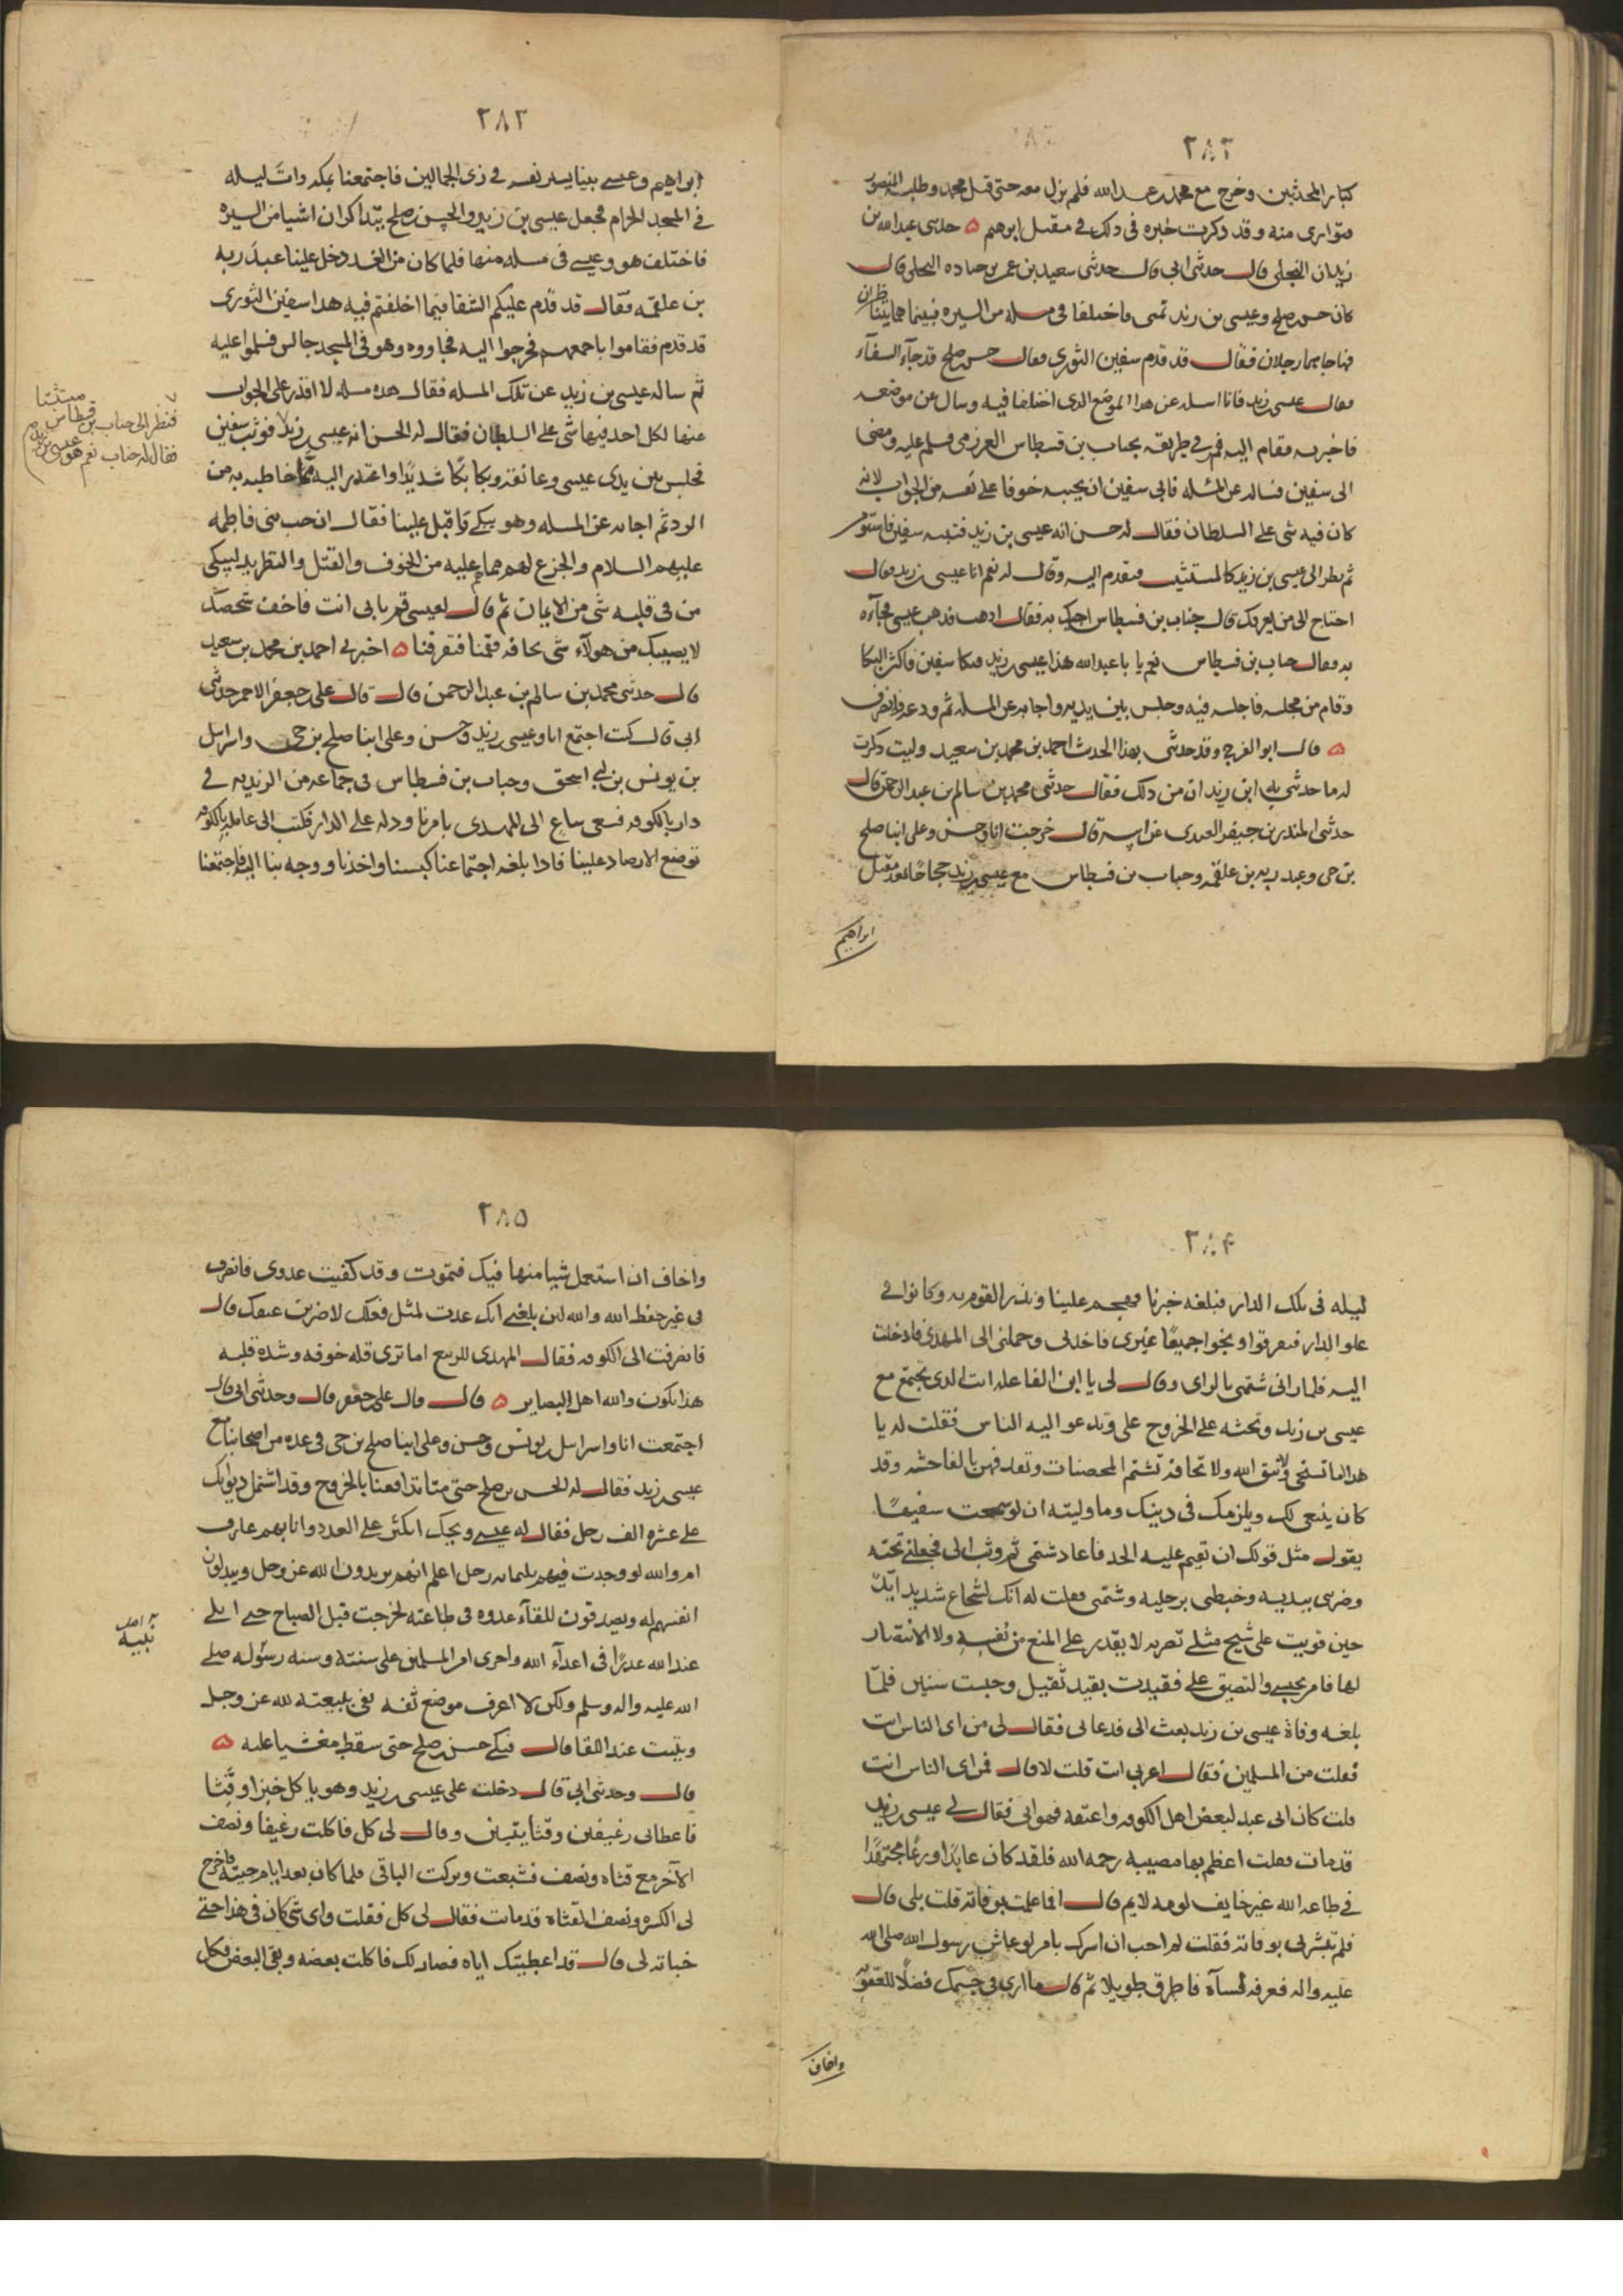 ٢٨٢
كبار المحدثين وخرج مع محمد بن عبد الله فلم يزل معه حتى قتل محمد وطلبه المنصور
فتوارى منه وقد ذكرت خبره فى ذلك فى مقتل ابرهيم ه حدثنى عبد الله بن
زيدان البجلى قال حدثنى ابى قال حدثنى سعيد بن عمر بن جناده البجلى قال
كان حسن بن صلح وعيسى بن زيد بمنى فاختلفا فى مسله من السيره فبينما هما يتناظران
فيها جاهما رجلان فقال قد قدم سفين الثورى فقال حسن بن صلح قد جآء الشفآء
فقال عيسى بن زيد فانا اسله عن هذا الموضع الذى اختلفنا فيه وسال عن موضعه
فاخبر به فقام اليه فمر فى طريقه بجناب بن قسطاس العرزمى فسلم عليه ومضى
الى سفين فساله عن المسله فابى سفين ان يجيبه خوفا على نفسه من الجواب لانه
كان فيه شى على السلطان فقال له حسن انه عيسى بن زيد فتنبه سفين فاستوفز
ثم نظر الى عيسى بن زيد كالمستثبت فتقدم اليه وقال له نعم انا عيسى بن زيد فقال
احتاج الى من يعرفك قال جناب بن قسطاس اجيك به فقال اذهب فذهب عيسى فجآءه
به فقال جناب بن قسطاس نعم يا با عبد الله هذا عيسى بن زيد فبكا سفين فاكثر البكا
وقام من مجلسه فاجلسه فيه وجلس بين يديه واجابه عن المسله ثم ودعه وانصرف
ه قال ابو الفرج وقد حدثنى بهذا الحديث احمد بن محمد بن سعيد وليت ذكرت
له ما حدثنى به ابن زيدان من ذلك فقال حدثنى محمد بن سالم بن عبد الرحمن قال
حدثنى المنذر بن جيفر العبدى عن ابيه قال خرجت انا وحسن وعلى ابنا صلح
بن حى وعبد ربه بن علقمه وجناب بن قسطاس مع عيسى بن زيد حجاجا بعد مقتل
ابراهيم
٢٨٣
ابراهيم وعيسى بيننا يستر نفسه فى زى الجمالين فاجتمعنا بمكه ذات ليله
فى المسجد الحرام فجعل عيسى بن زيد والحسن بن صلح يتذاكران اشيا من السيره
فاختلف هو وعيسى فى مسله منها فلما كان من الغد دخل علينا عبد ربه
بن علقمه فقال قد قدم عليكم الشفا فيما اختلفتم فيه هذا سفين الثورى
قد قدم فقاموا باجمعهم فخرجوا اليه فجاووه وهو فى المسجد جالس فسلموا عليه
ثم ساله عيسى بن زيد عن تلك المسله فقال هذه مسله لا اقدر على الجواب
عنها لكل احد فيها شى على السلطان فقال له الحسن انه عيسى بن زيد فوثب سفين
فجلس بين يدى عيسى وعانقه وبكا بكًا شديدًا واعتذر اليه مما خاطبه به من
الرد ثم اجابه عن المسله وهو يبكى واقبل علينا فقال ان حب بنى فاطمه
عليهم السلام والجزع لهم مما هم عليه من الخوف والقتل والتطريد ليبكى
من فى قلبه شى من الايمان ثم قال لعيسى قم بابى انت فاخف شخصك
لا يصيبك من هولآء شى نخافه فقمنا فتفرقنا ه اخبرنى احمد بن محمد بن سعيد
قال حدثنى محمد بن سالم بن عبد الرحمن قال قال على بن جعفر الاحمر حدثنى
ابى قال كنت اجتمع انا وعيسى بن زيد وحسن وعلى ابنا صلح بن حى واسراىل
بن يونس بن ابى اسحق وجناب بن قسطاس فى جماعه من الزيديه فى
دار بالكوفه فسعى ساعٍ الى المهدى بامرنا ودله على الدار فكتب الى عامله بالكوفه
توضع الارصاد علينا فاذا بلغه اجتماعنا كبسنا واخذنا ووجه بنا اليه فاجتمعنا
مستثبتا
فنظر الى جناب بن قسطاس
فقال له جناب نعم هو عيسى بن زيد
٢٨٤
ليله فى تلك الدار فبلغه خبرنا فهجم علينا ونذر القوم به وكانوا فى
علو الدار فتفرقوا ونجوا جميعًا غيرى فاخذنى وحملنى الى المهدى فادخلت
اليه فلما رانى شتمنى بالزناى وقال لى يا ابن الفاعله انت الذى تجتمع مع
عيسى بن زيد وتحثه على الخروج على وتدعو اليه الناس فقلت له يا
هذا اما تستحى ولا تتق الله ولا تخافه تشتم المحصنات وتقذفهن بالفاحشه وقد
كان ينبغى لك ويلزمك فى دينك وما وليته ان لو سمعت سفيهًا
يقول مثل قولك ان تقيم عليه الحد فاعاد شتمى ثم وثب الى فجعلنى تحته
وضربنى بيديه وخبطنى برجليه وشتمنى فقلت له انك لشجاع شديد ايّد
حين قويت على شيخ مثلى تضربه لا يقدر على المنع من نفسه ولا الانتصار
لها فامر بحبسى والتضييق على فقيدت بقيد ثقيل وحبست سنين فلمّا
بلغه وفاة عيسى بن زيد بعث الى فدعانى فقال لى من اى الناس انت
فقلت من المسلمين فقال اعرابى انت قلت لا قال فمن اى الناس انت
قلت كان ابى عبد لبعض اهل الكوفه واعتقه فهو ابى فقال لى عيسى بن زيد
قد مات فقلت اعظم بها مصيبه رحمه الله فلقد كان عابدًا ورعًا مجتهدًا
فى طاعه الله غير خايف لومه لايم قال افما علمت بوفاته قلت بلى قال
فلم تبشرنى بوفاته فقلت لم احب ان ابشرك بامر لو عاش رسول الله صلى الله
عليه واله فعرفه لسآه فاطرق طويلا ثم قال ما ارى فى جسمك فضلًا للعقوبه
واخاف
٢٨٥
واخاف ان استعمل شيا منها فيك فتموت وقد كفيت عدوى فانصرف
فى غير حفظ الله والله لين بلغنى انك عدت لمثل فعلك لاضربن عنقك قال
فانصرفت الى الكوفه فقال المهدى للربيع اما ترى قله خوفه وشده قلبه
هذا يكون والله اهل البصاير ه قال وقال على بن جعفر قال وحدثنى ابى قال
اجتمعت انا واسراىل بن يونس وحسن وعلى ابنا صلح بن حى فى عده من اصحابنا مع
عيسى بن زيد فقال له الحسن بن صلح حتى متا تدافعنا بالخروج وقد اشتمل ديوانك
على عشره الف رجل فقال له عيسى ويحك اتكثر على العدد وانا بهم عارف
اما والله لو وجدت فيهم ثلثمايه رجل اعلم انهم يريدون الله عز وجل ويبذلون
انفسهم له ويصدقون للقآء عدوه فى طاعته لخرجت قبل الصباح حتى ابلى
عند الله عذرًا فى اعدآء الله واجرى امر المسلمين على سنته وسنه رسوله صلى
الله عليه واله وسلم ولكن لا اعرف موضع ثقه يفى ببيعته لله عز وجل
ويثبت عند اللقا قال فبكى حسن بن صلح حتى سقط مغشيا عليه ه
قال وحدثنى ابى قال دخلت على عيسى بن زيد وهو ياكل خبزا وقثًّا
فاعطانى رغيفين وقثايتين وقال لى كل فاكلت رغيفا ونصف
الآخر مع قثاه ونصف فشبعت وتركت الباقى فلما كان بعد ايام جيته فاخرج
لى الكسره ونصف القثاه قد مات فقال لى كل فقلت واى شى كان فى هذا حتى
خباته لى قال قد اعطيتك اياه فصار لك فاكلت بعضه وبقى البعض فكل